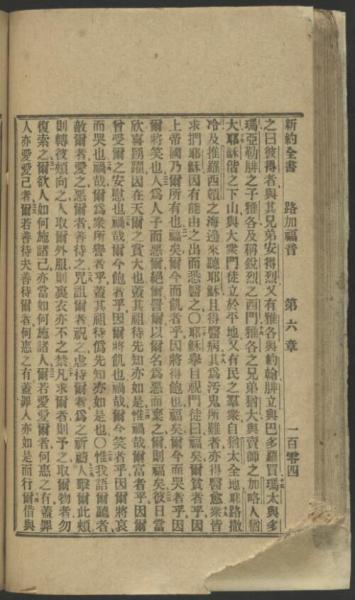 新約全書 路加福音 第六章 一百零四
之曰彼得者與其兄弟安得烈又有雅各與約翰腓立與巴多羅買瑪太與多
瑪亞勒腓之子雅各及稱銳烈之西門雅各之兄弟猶大與賣師之加畧人猶
大耶穌偕之下山與大衆門徒立於平地又有民之羣衆自猶太全地耶路撒
冷及推羅西頓之海邊來聽耶穌且得醫病其爲汚鬼所難者亦得醫愈衆皆
求捫耶穌因有能由之出而悉醫之〇耶穌舉目視門徒曰福矣爾貧者乎因
上帝國乃爾所有也福矣爾今而飢者乎因將得飽也福矣爾今而哭者乎因
爾將笑也人爲人子而惡爾絕爾詈爾以爾名爲惡而棄之爾則福矣彼日當
欣喜踴躍因在天爾之賞大也蓋其祖待先知亦如是惟禍哉爾富者乎因爾
曾受爾之安慰也禍哉爾今飽者乎因爾將飢也禍哉爾今笑者乎因爾將哀
而哭也禍哉爾爲衆所譽者乎蓋其祖待僞先知亦如是也〇惟我語爾聽者
敵爾者愛之惡爾者善待之咒詛爾者祝之虐待爾者爲之祈禱人擊爾此頰
則轉彼頰向之人取爾外服則裏衣亦不之禁凡求爾者則予之取爾物者勿
復索之爾欲人如何施諸己亦當如何施諸人爾若愛愛爾者何惠之有蓋罪
人亦愛愛己者爾若善待夫善待爾者何惠之有蓋罪人亦如是而行爾借與